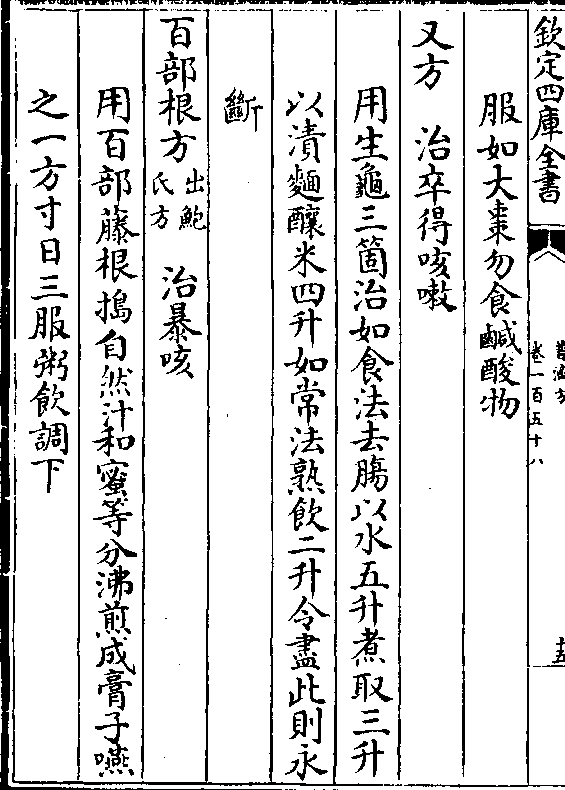 欽定四庫全書
普濟方
卷一百五十八
十五
服如大棗勿食鹹酸物
又方　治卒得咳嗽
用生龜三箇治如食法去腸以水五升煮取三升
以漬麵釀米四升如常法熟飲二升令盡此則永
斷
百部根方出鮑氏方　治暴咳
用百部藤根搗自然汁和蜜等分沸煎成膏子嚥
之一方寸日三服粥飲調下